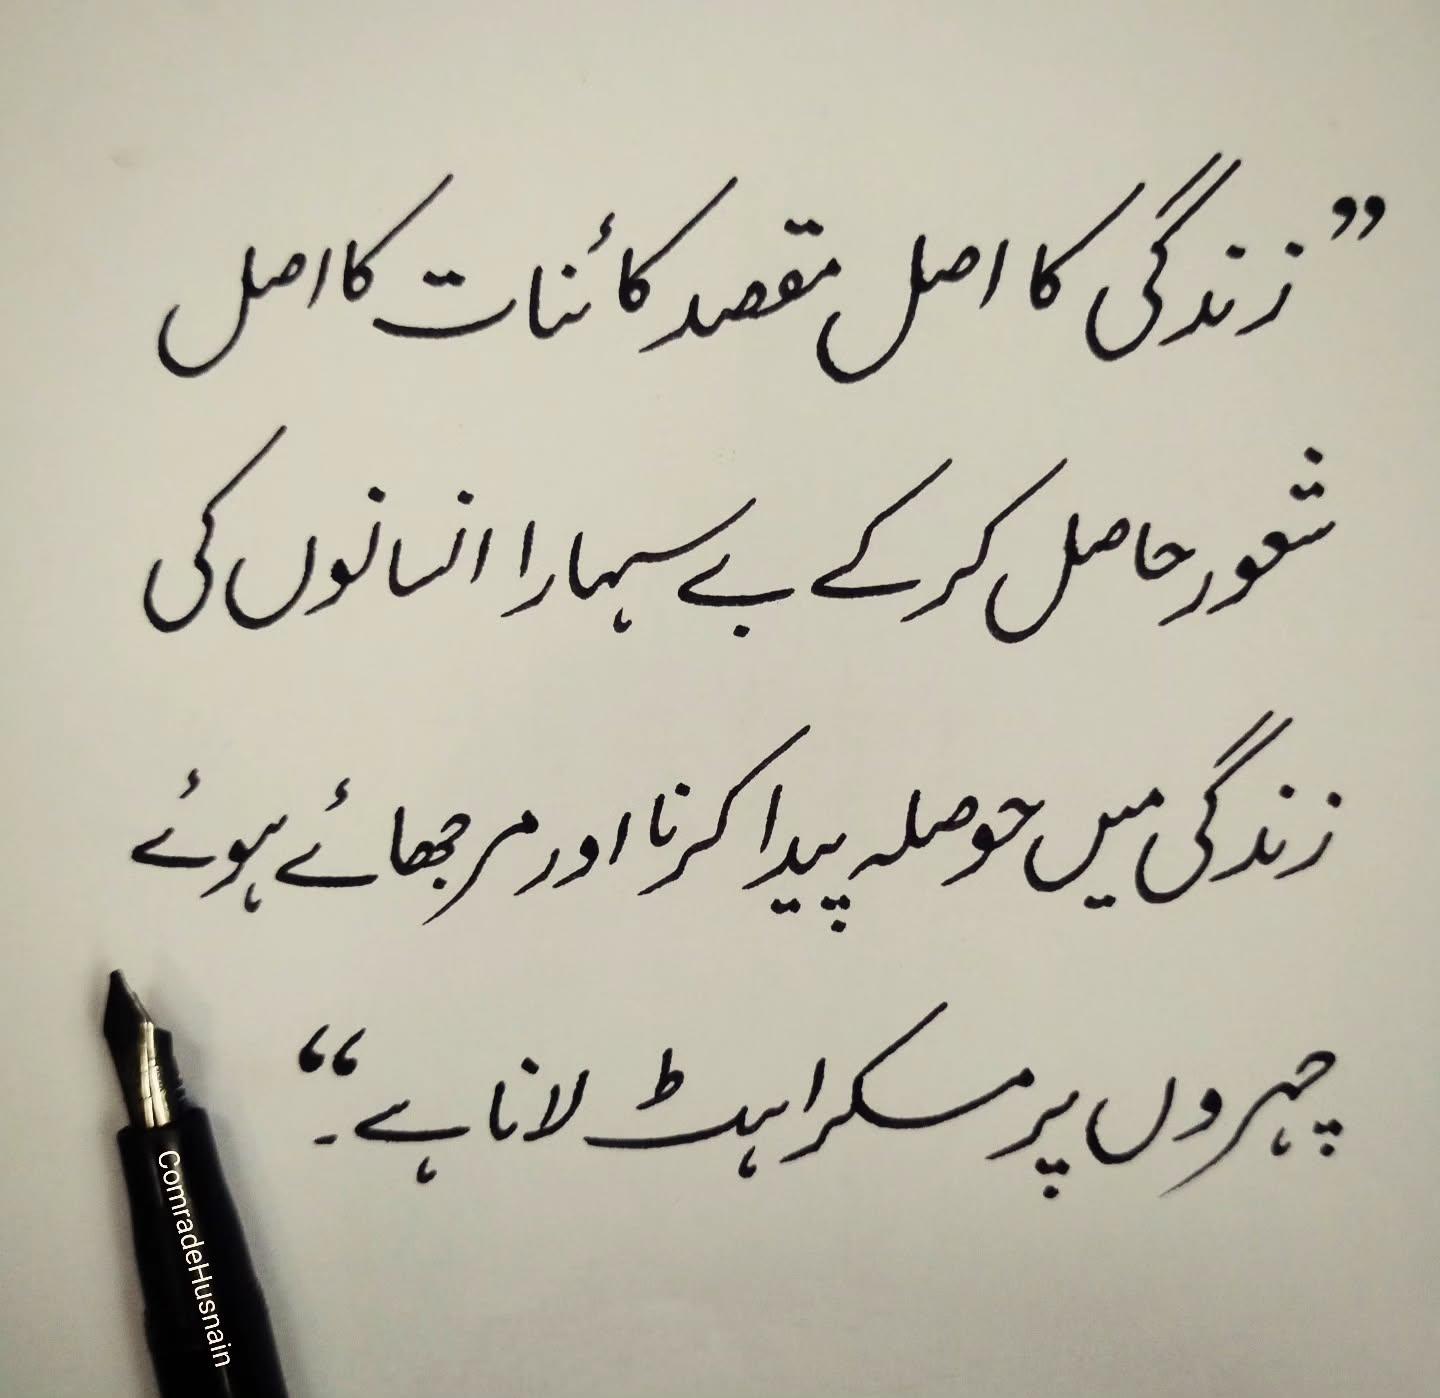 ”زندگی کا اصل مقصد کائنات کا اصل
شعور حاصل کرکے بے سہارا انسانوں کی
زندگی میں حوصلہ پیدا کرنا اور مرجھائے ہوئے
چہروں پر مسکراہٹ لانا ہے۔“
ComradeHusnain